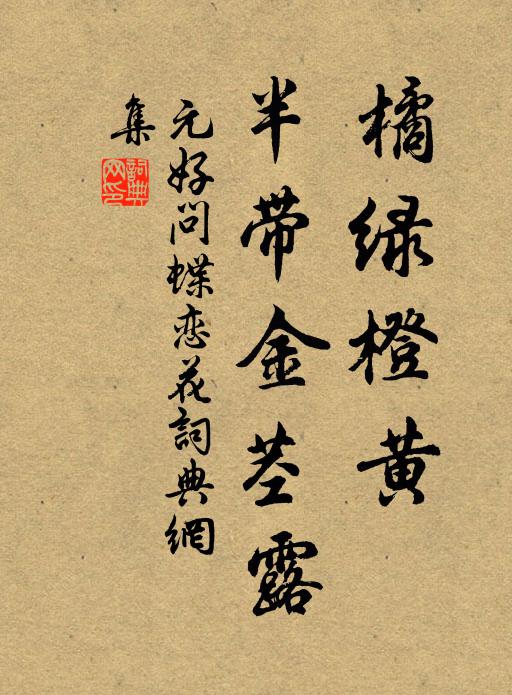 橘绿橙黄
半带金茎露
元好问蝶恋花詞典網
集
詞典
网印